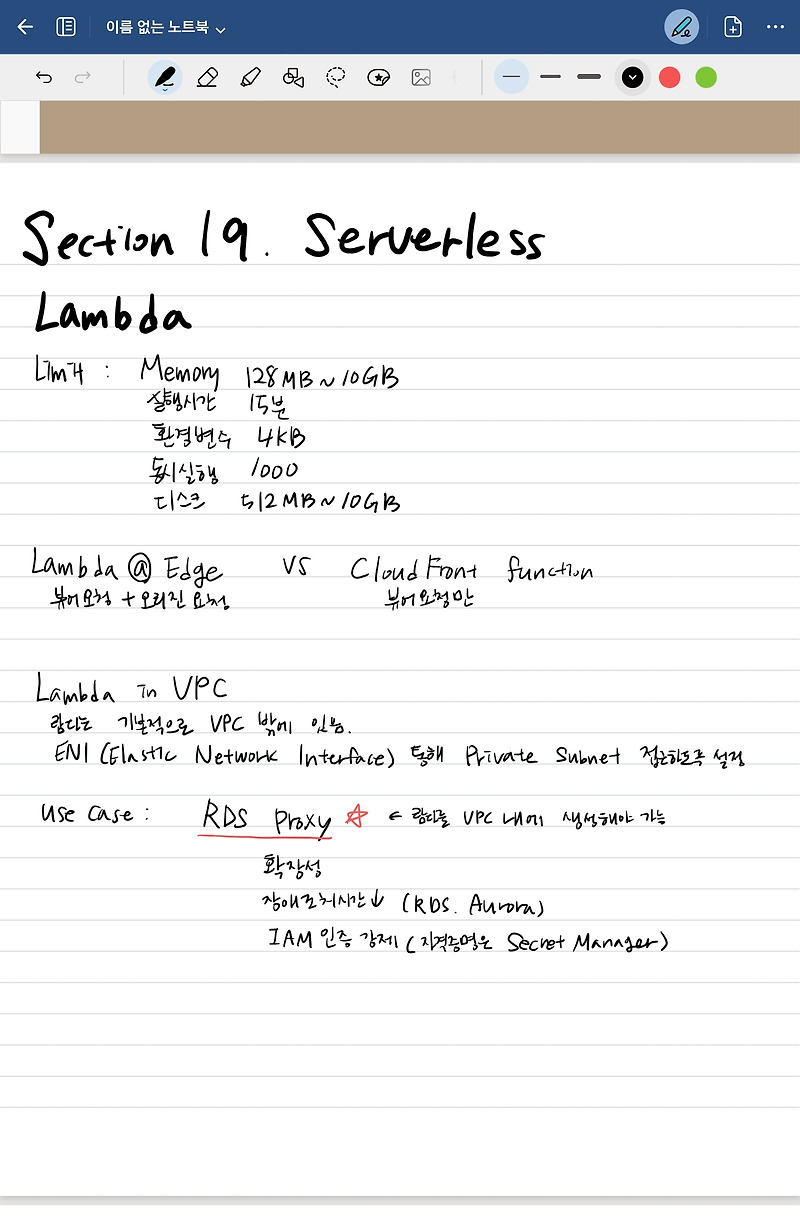 이름 없는 노트북
Section 19. Serverless
Lambda
Limit : Memory 128MB ~ 10GB
실행시간 15분
환경변수 4KB
동시실행 1000
디스크 512MB ~ 10GB
Lambda @ Edge vs CloudFront function
뷰어요청 + 오리진 요청 뷰어요청만
Lambda in VPC
람다는 기본적으로 VPC 밖에 있음.
ENI (Elastic Network Interface) 통해 Private Subnet 접근하도록 설정
Use Case : RDS Proxy ☆ ← 람다를 VPC 내에 생성해야 가능
확장성
장애조치시간↓ (RDS. Aurora)
IAM 인증 강제 (자격증명은 Secret Manager)